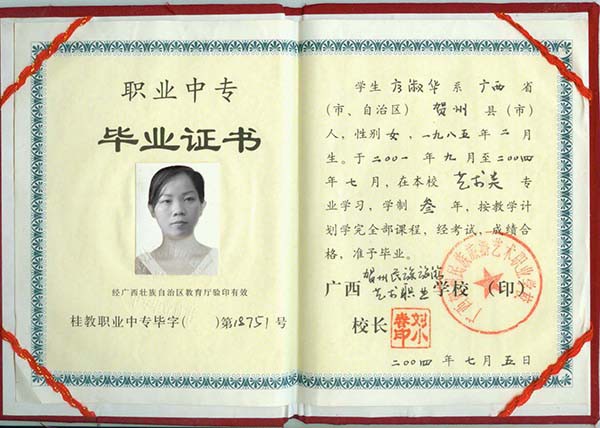 职业中专
毕业证书
经广西壮族自治区教育厅验印有效
桂教职业中专毕字( )第18751号
学生 彦淑华 系 广西 省
(市、自治区) 贺州 县(市)
人,性别女,一九八五年二月
生。于二〇〇一年九月至二〇〇四
年七月,在本校 艺术类 专
业学习,学制 叁 年,按教学计
划学完全部课程,经考试,成绩合
格,准予毕业。
广西 贺州民族旅游艺术职业 学校 (印)
校长
刘小春印
二〇〇四年七月五日